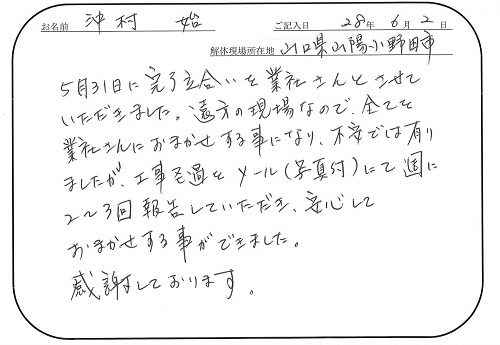 お名前 沖村 始 ご記入日 28年 6月 2日
解体現場所在地 山口県山陽小野田市
5月31日に完了立合いを業社さんとさせて
いただきました。遠方の現場なので、全てを
業社さんにおまかせする事になり、不安では有り
ましたが、工事経過をメール(写真付)にて週に
2〜3回報告していただき、安心して
おまかせする事ができました。
感謝しております。